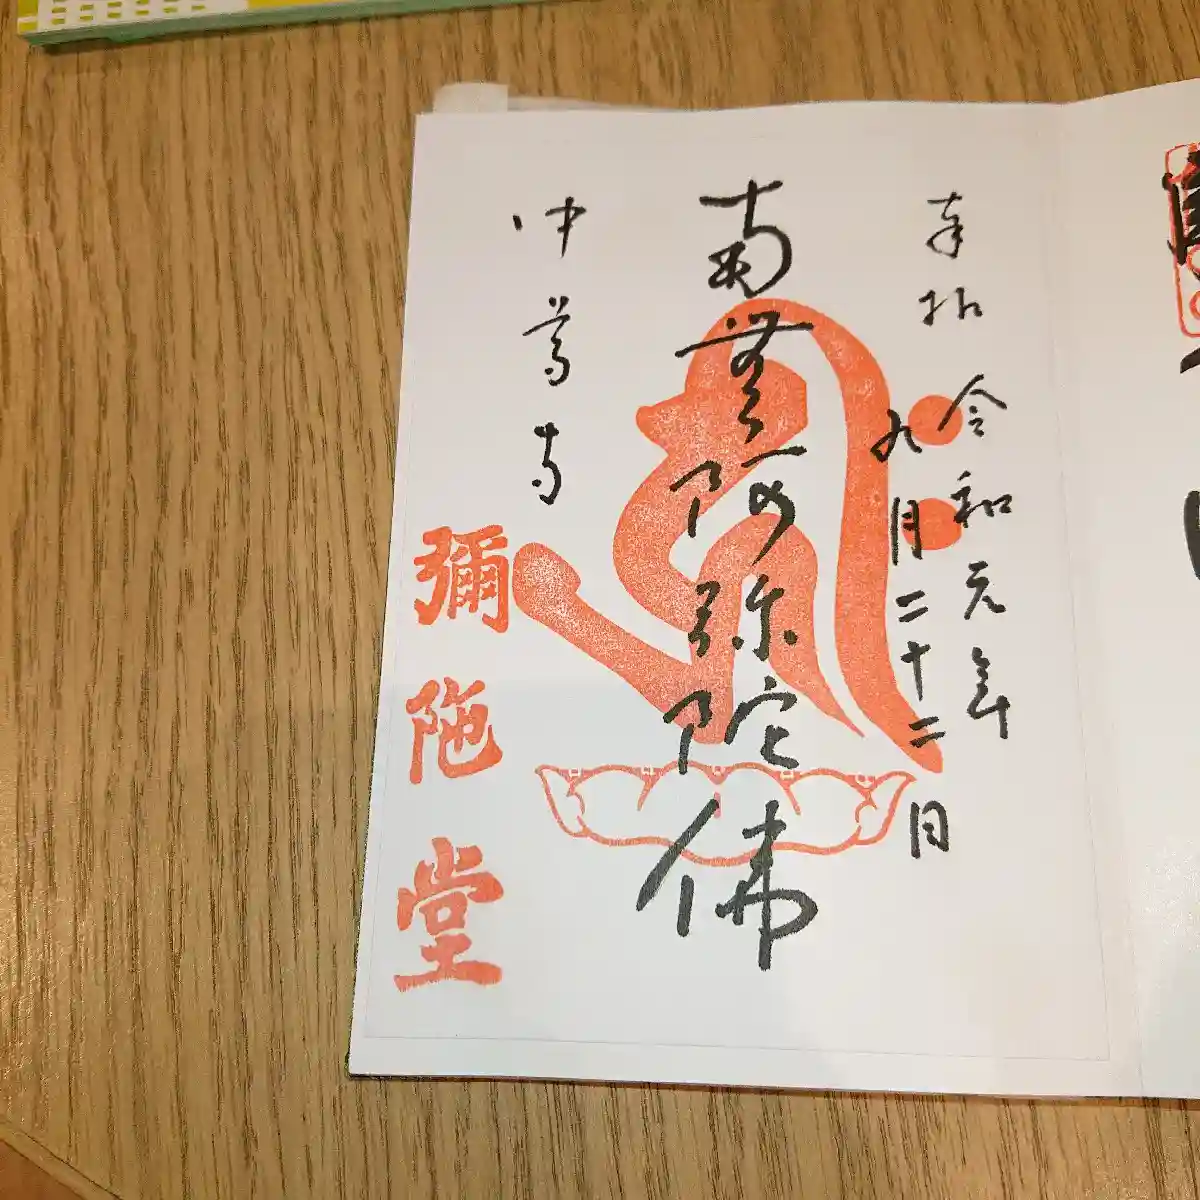 奉拝
令和元年
九月二十二日
南無阿弥陀佛
中尊寺
彌陁堂